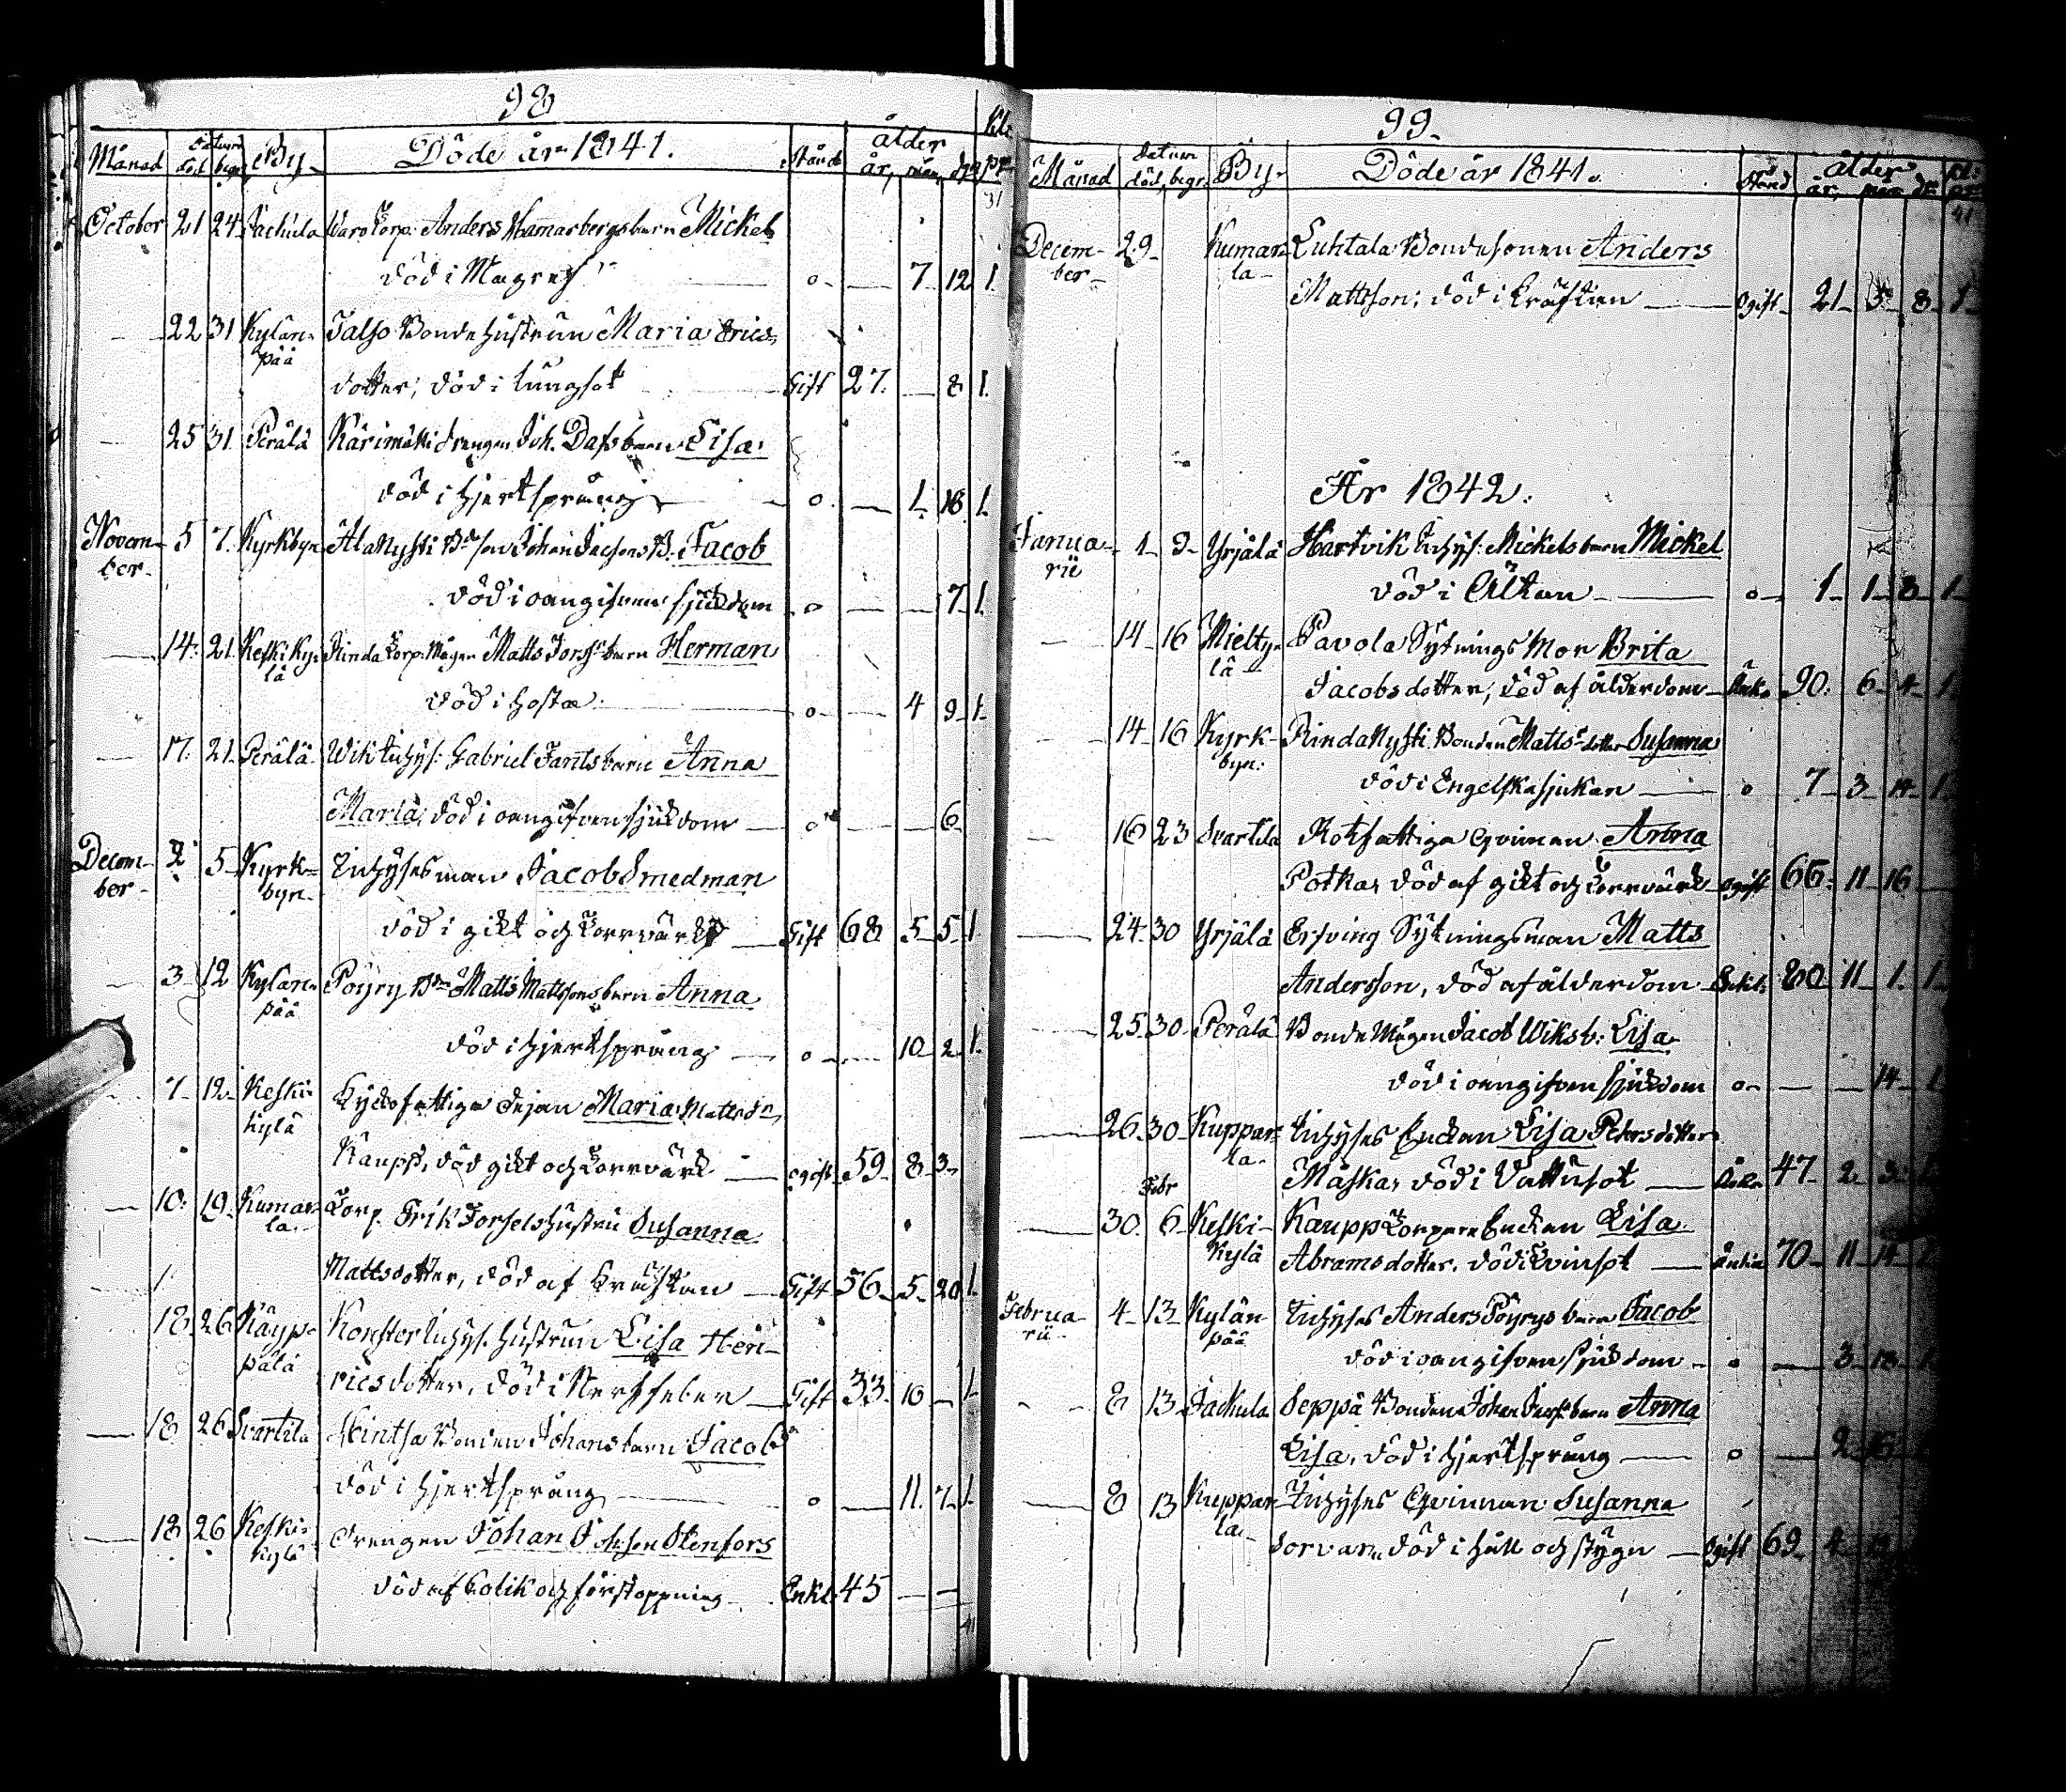 98
Månad Datum död begr. By Döde år 1841. Stånd ålder år, mån, dg
October 21 24 Jackula Anders Hamarbergs barn Mickel
död i Magref o — 7 12 1.
— 22 31 Kylän=
pää Talso Bonde hustrun Maria Erics
dotter, död i lungsot Gift 27. — 8 1.
— 25 31 Perälä Kärimäki drengen Joh. Dafs barn Lisa
död i hjertsprång o. — 1. 18. 1.
Novem=
ber 5 7. Kyrkbyn AlaNysti Johan Jacobs B. Jacob
död i oangifven sjukdom o — — 7 1.
— 14. 21. Keski Ky=
lä Rinda Torp. Mågen Matts barn Herman
död i hosta o — 4 9 1.
— 17. 21. Perälä Wik Inhys. Gabriel Jants barn Anna
Maria, död i oangifven sjukdom — o — — 6
Decem=
ber 2 5 Kyrk=
byn Inhysesman Jacob Smedman
död i gikt och torrvärk — Gift 68 5 5 1
— 3 12 Kylän=
pää Pöyry Matts Mattssons barn Anna
död i hjertsprång — o — 10 2 1.
— 7 12 Keski
kylä fattiga Pejan Maria Matts dr
Kaupp, död gikt och torrvärk — ogift 59 8 3
— 10. 19. Kumar=
la Torp. Erik Forsels hustru Susanna
Mattsdotter, död af kräftan — Gift 56 5 20 1
18 26 Käyp=
pälä Konster Inhys. hustrun Lisa Hen=
ricsdotter, död i Nervfeber — Gift 33. 10 — 1
— 18 26 Svartila Hintsa Bonden Johans barn Jacob
död i hjertsprång o — 11. 7 1
— 18 26 Keski=
kylä Drengen Johan Johsson Stenfors
död af Colik och förstoppning Enkl. 45 — —
41
99.
Månad Datum död, begr. By Döde år 1841. Stånd ålder år,
41
Decem=
ber 29 Kumar=
la Luhtala Bondesonen Anders
Mattsson, död i kräftan — Ogift 21 5 8 1
År 1842.
Janua=
rii 1 9 Yrjälä Hartvik Inhys: Mickels barn Mickel
död i Ältan — o 1 1 8 1
— 14 16 Mielty=
lä Pavola Sytnings Mor Brita
Jacobsdotter, död af ålderdom Änk. 90. 6 4 1
— 14 16 Kyrk=
byn. RindaNysti Bonden Matts dotter Susanna
död i Engelska sjukan — o 7 3 14 1
— 16 23 Svartila Rotfattiga qvinnan Anna
Potka, död af gikt och torrvärk ogift 66. 11 16 —
— 24 30 Yrjälä Erfving Sytningsman Matts
Andersson, död af ålderdom Enkl. 80 11 1. 1
— 25 30 Perälä Bonde Mågen Jacob Wiks b. Lisa
död i oangifven sjukdom o — — 14 1
— 26 30 Kuppar=
la Inhyses Enckan Lisa Petersdotter
Maska, död i Vattusot — Änka 47 2
— 30. Febr 6 Keski=
kylä Kaupp Torpare Enckan Lisa
Abramsdotter, död i Tvinsot — Änka 70 11 14
Februa=
rii 4 13 Kylän=
pää Inhyses Anders Pöyrys barn Jacob
död i oangifven sjukdom o — 3 18
8 13 Jackula Seppä Bonden Johan barn Anna
Lisa, död i hjertsprång — o — 2
— 8 13 Kuppar=
la Inhyses Qvinnan Susanna
död i håll och stygn — Ogift 69 4